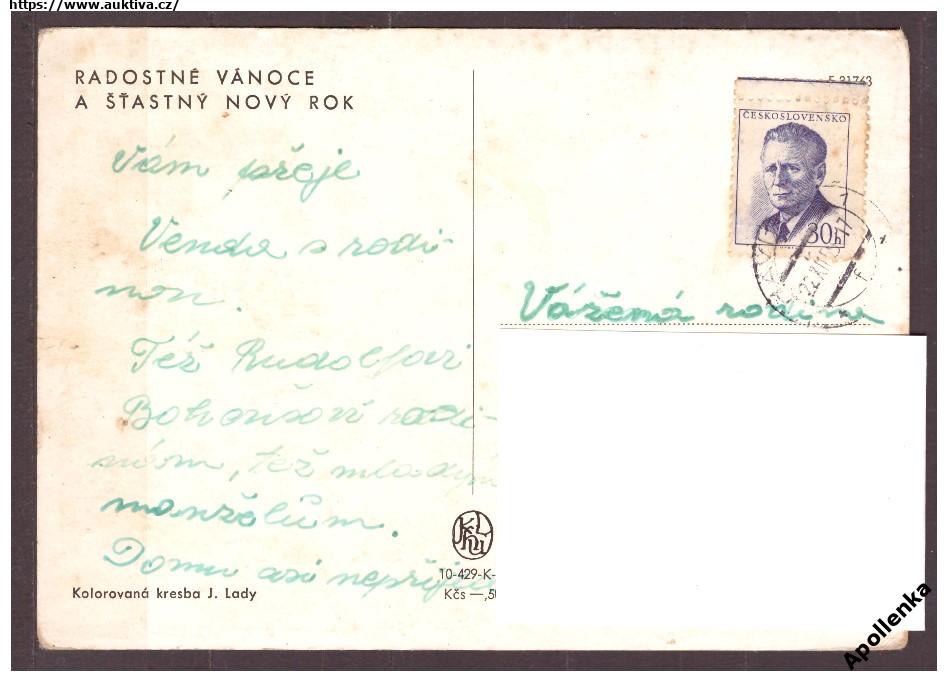 https://www.auktiva.cz/
RADOSTNÉ VÁNOCE
A ŠŤASTNÝ NOVÝ ROK
Vám přeje
Venda s rodi-
nou.
Též Rudolfovi
Bohoušovi rodi-
nám, též mladým
manželům.
Domu asi nepřijedu
Kolorovaná kresba J. Lady
10-429-K-
Kčs —,50
F 21743
ČESKOSLOVENSKO
30h
Vážená rodina
Apollenka